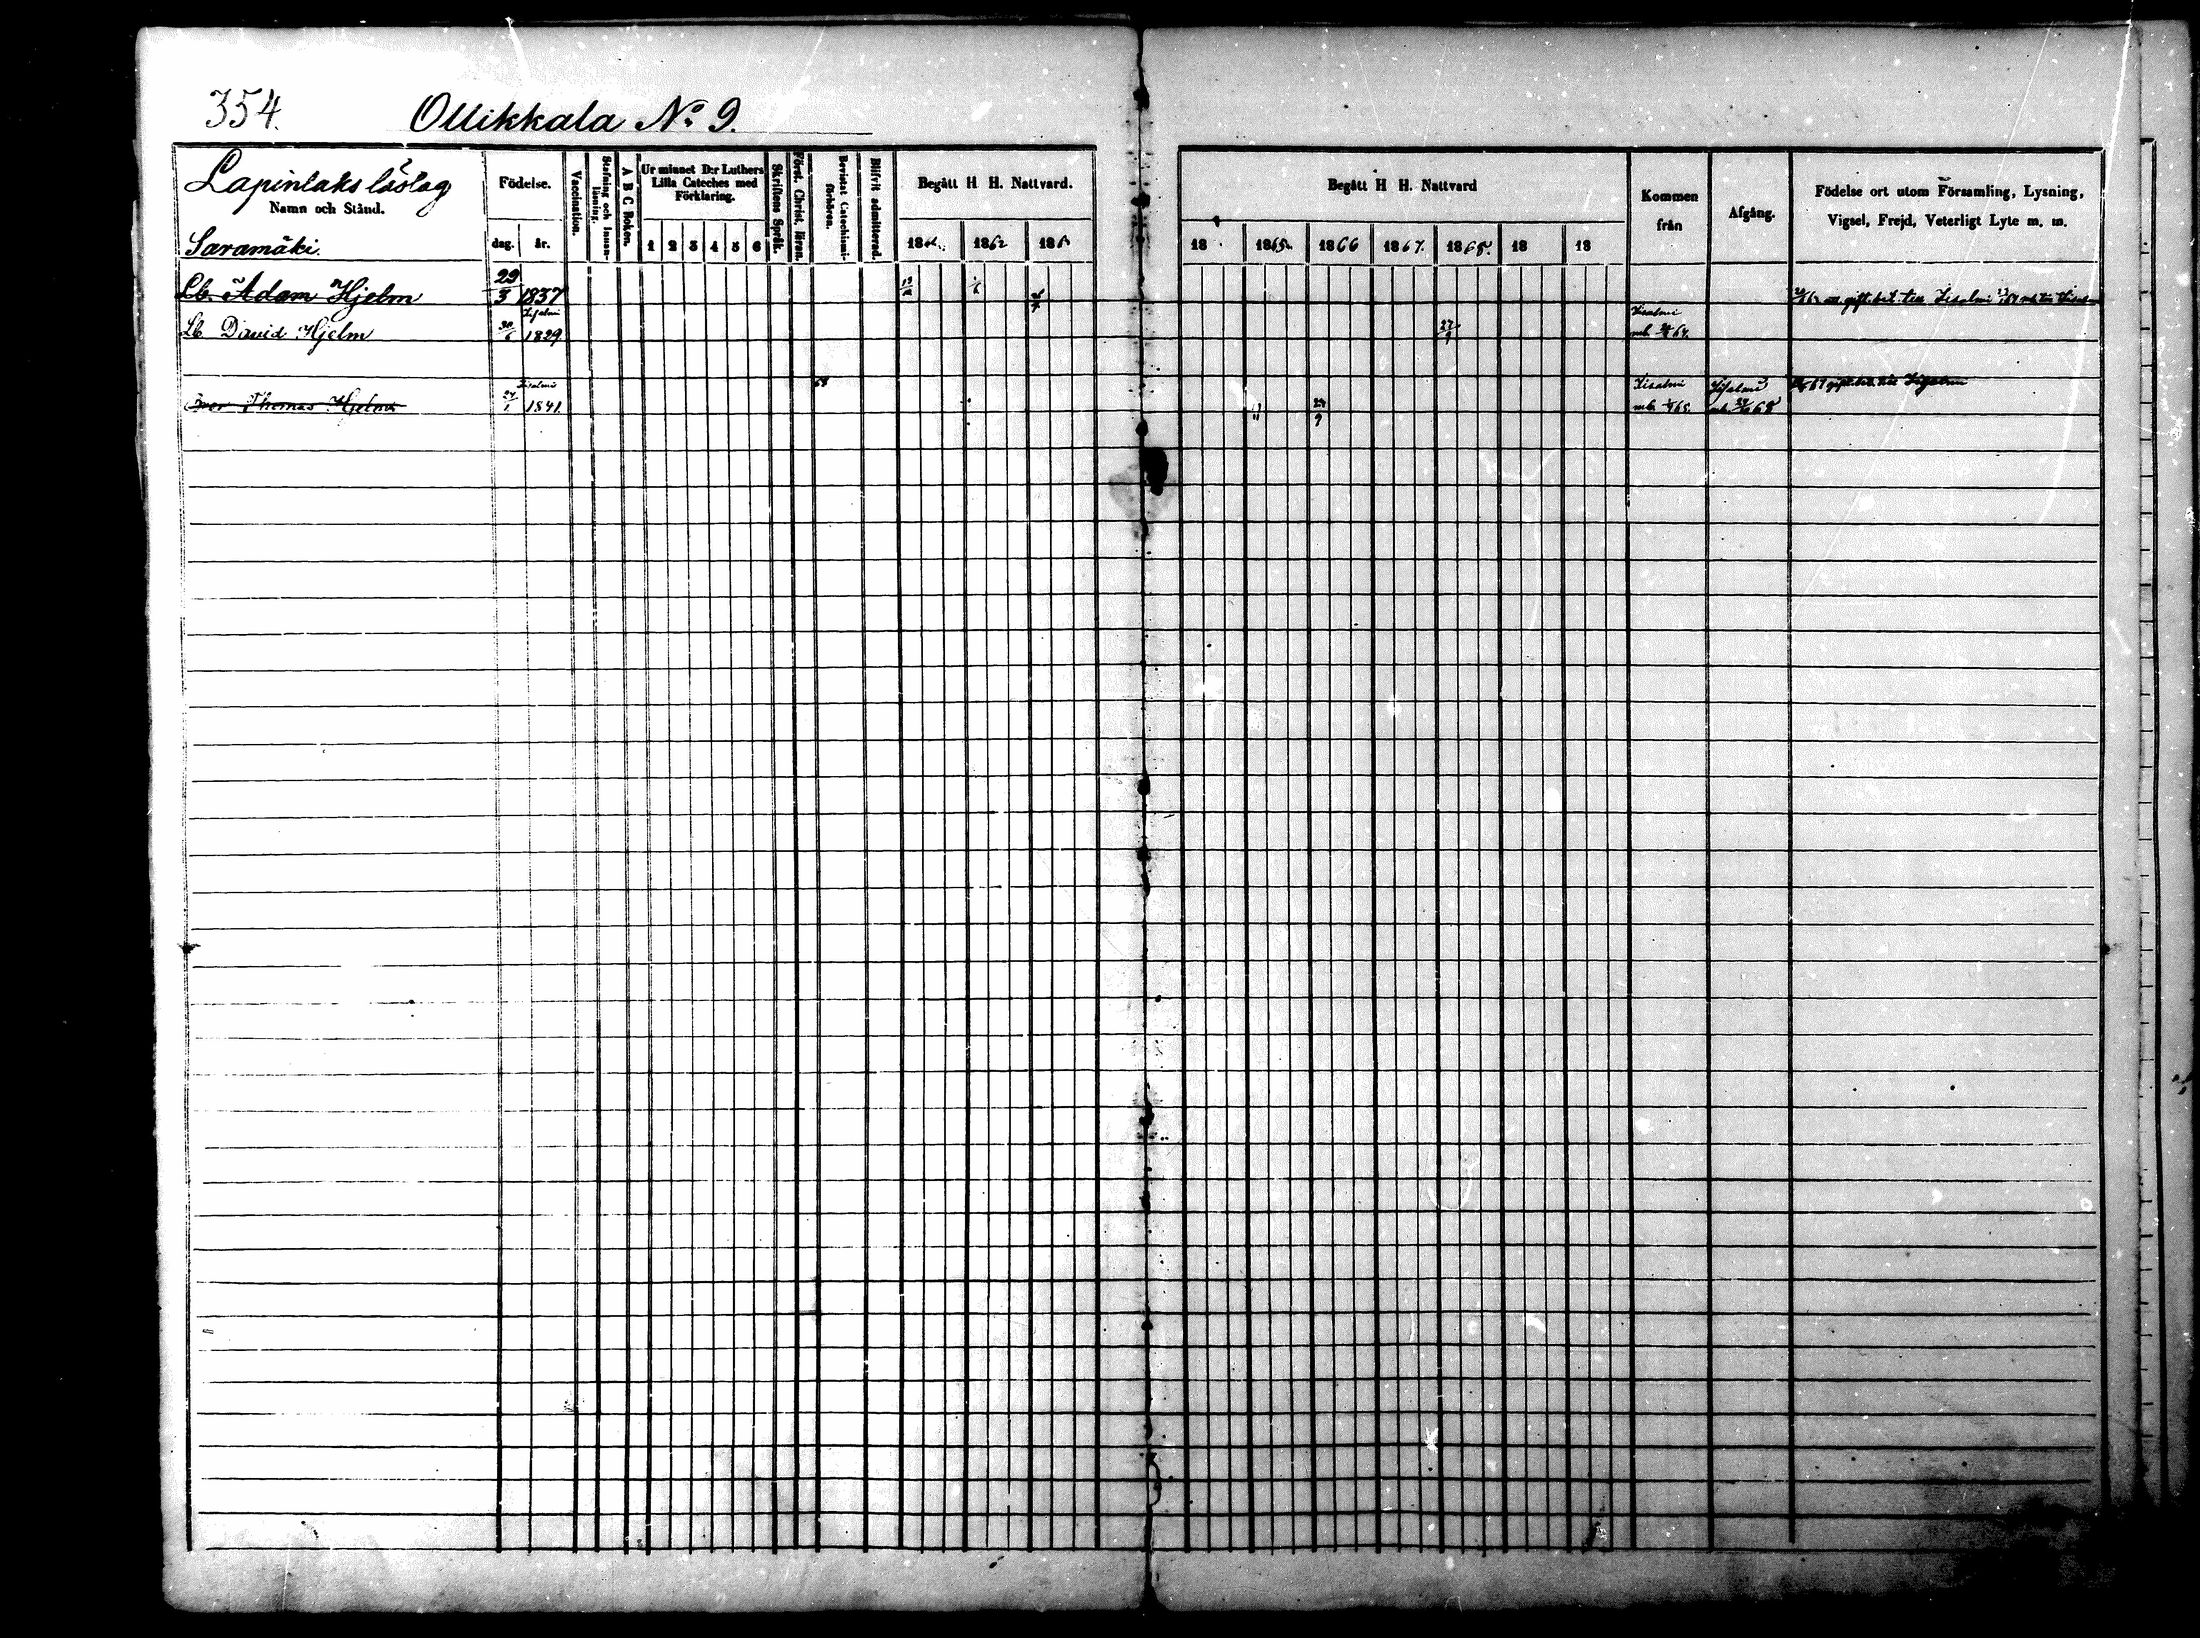 354. Ollikkala No 9.
Lapinlaks läslag
Namn och Stånd.
Saramäki.
Födelse.
dag. år.
Vaccination.
Stafning och Innan-
läsning.
A B C Boken.
Ur minnet D:r Luthers
Lilla Cateches med
Förklaring.
1 2 3 4 5 6
Skriftens Språk.
Först. Christ. läran.
Bevistat Catechismi-
förhören.
Blifvit admitterad.
Begått H H. Nattvard.
1862
Begått H H. Nattvard
18 1865 1866 1867. 1868. 18 18
Kommen
från
Afgång.
Födelse ort utom Församling, Lysning,
Vigsel, Frejd, Veterligt Lyte m. m.
Lb. Adam Hjelm 29/3 1837
Lb David Hjelm 30/6 1829 27/9 Iisalmi
Thomas Hjelm 24/1 1841. 68 Iisalmi